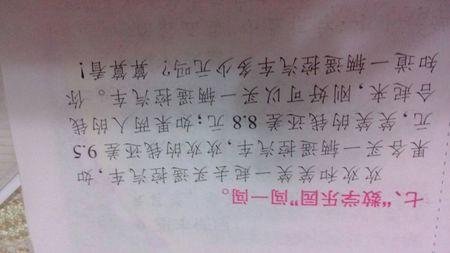 七、“数学乐园”闯一闯。
欢欢和笑笑一起去买遥控汽车，如
果各买一辆遥控汽车，欢欢的钱还差 9.5
元，笑笑的钱还差 8.8 元；如果两人的钱
合起来，刚好可以买一辆遥控汽车。你
知道一辆遥控汽车多少元吗？算算看！